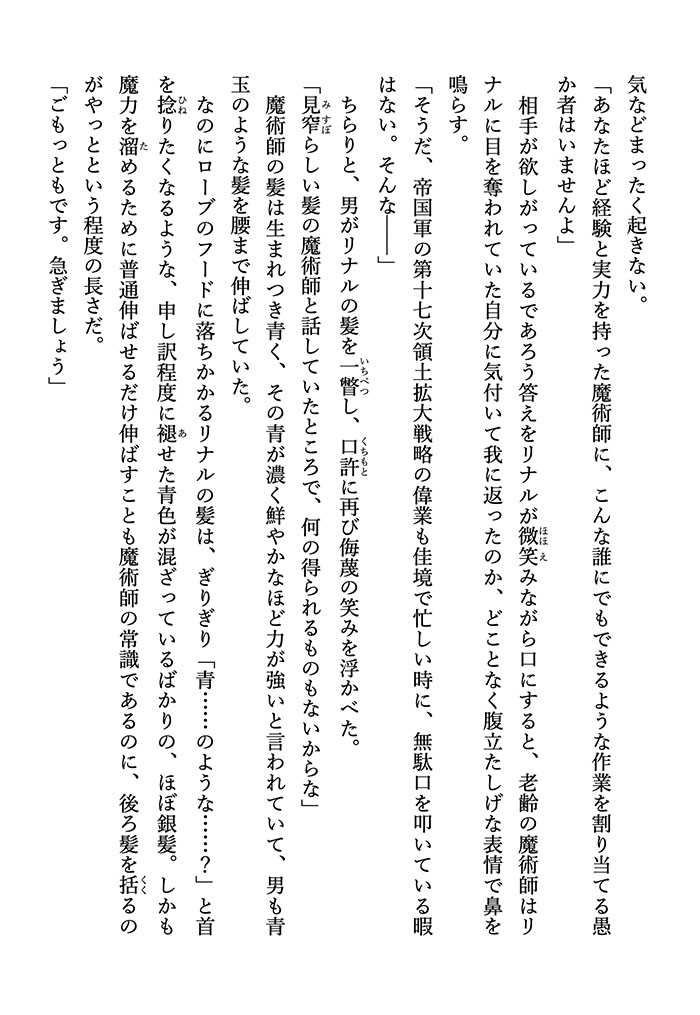 気などまったく起きない。
「あなたほど経験と実力を持った魔術師に、こんな誰にでもできるような作業を割り当てる愚
か者はいませんよ」
相手が欲しがっているであろう答えをリナルが微笑みながら口にすると、老齢の魔術師はリ
ナルに目を奪われていた自分に気付いて我に返ったのか、どことなく腹立たしげな表情で鼻を
鳴らす。
「そうだ、帝国軍の第十七次領土拡大戦略の偉業も佳境で忙しい時に、無駄口を叩いている暇
はない。そんな――」
ちらりと、男がリナルの髪を一瞥し、口許に再び侮蔑の笑みを浮かべた。
「見窄らしい髪の魔術師と話していたところで、何の得られるものもないからな」
魔術師の髪は生まれつき青く、その青が濃く鮮やかなほど力が強いと言われていて、男も青
玉のような髪を腰まで伸ばしていた。
なのにローブのフードに落ちかかるリナルの髪は、ぎりぎり「青……のような……？」と首
を捻りたくなるような、申し訳程度に褪せた青色が混ざっているばかりの、ほぼ銀髪。しかも
魔力を溜めるために普通伸ばせるだけ伸ばすことも魔術師の常識であるのに、後ろ髪を括るの
がやっとという程度の長さだ。
「ごもっともです。急ぎましょう」